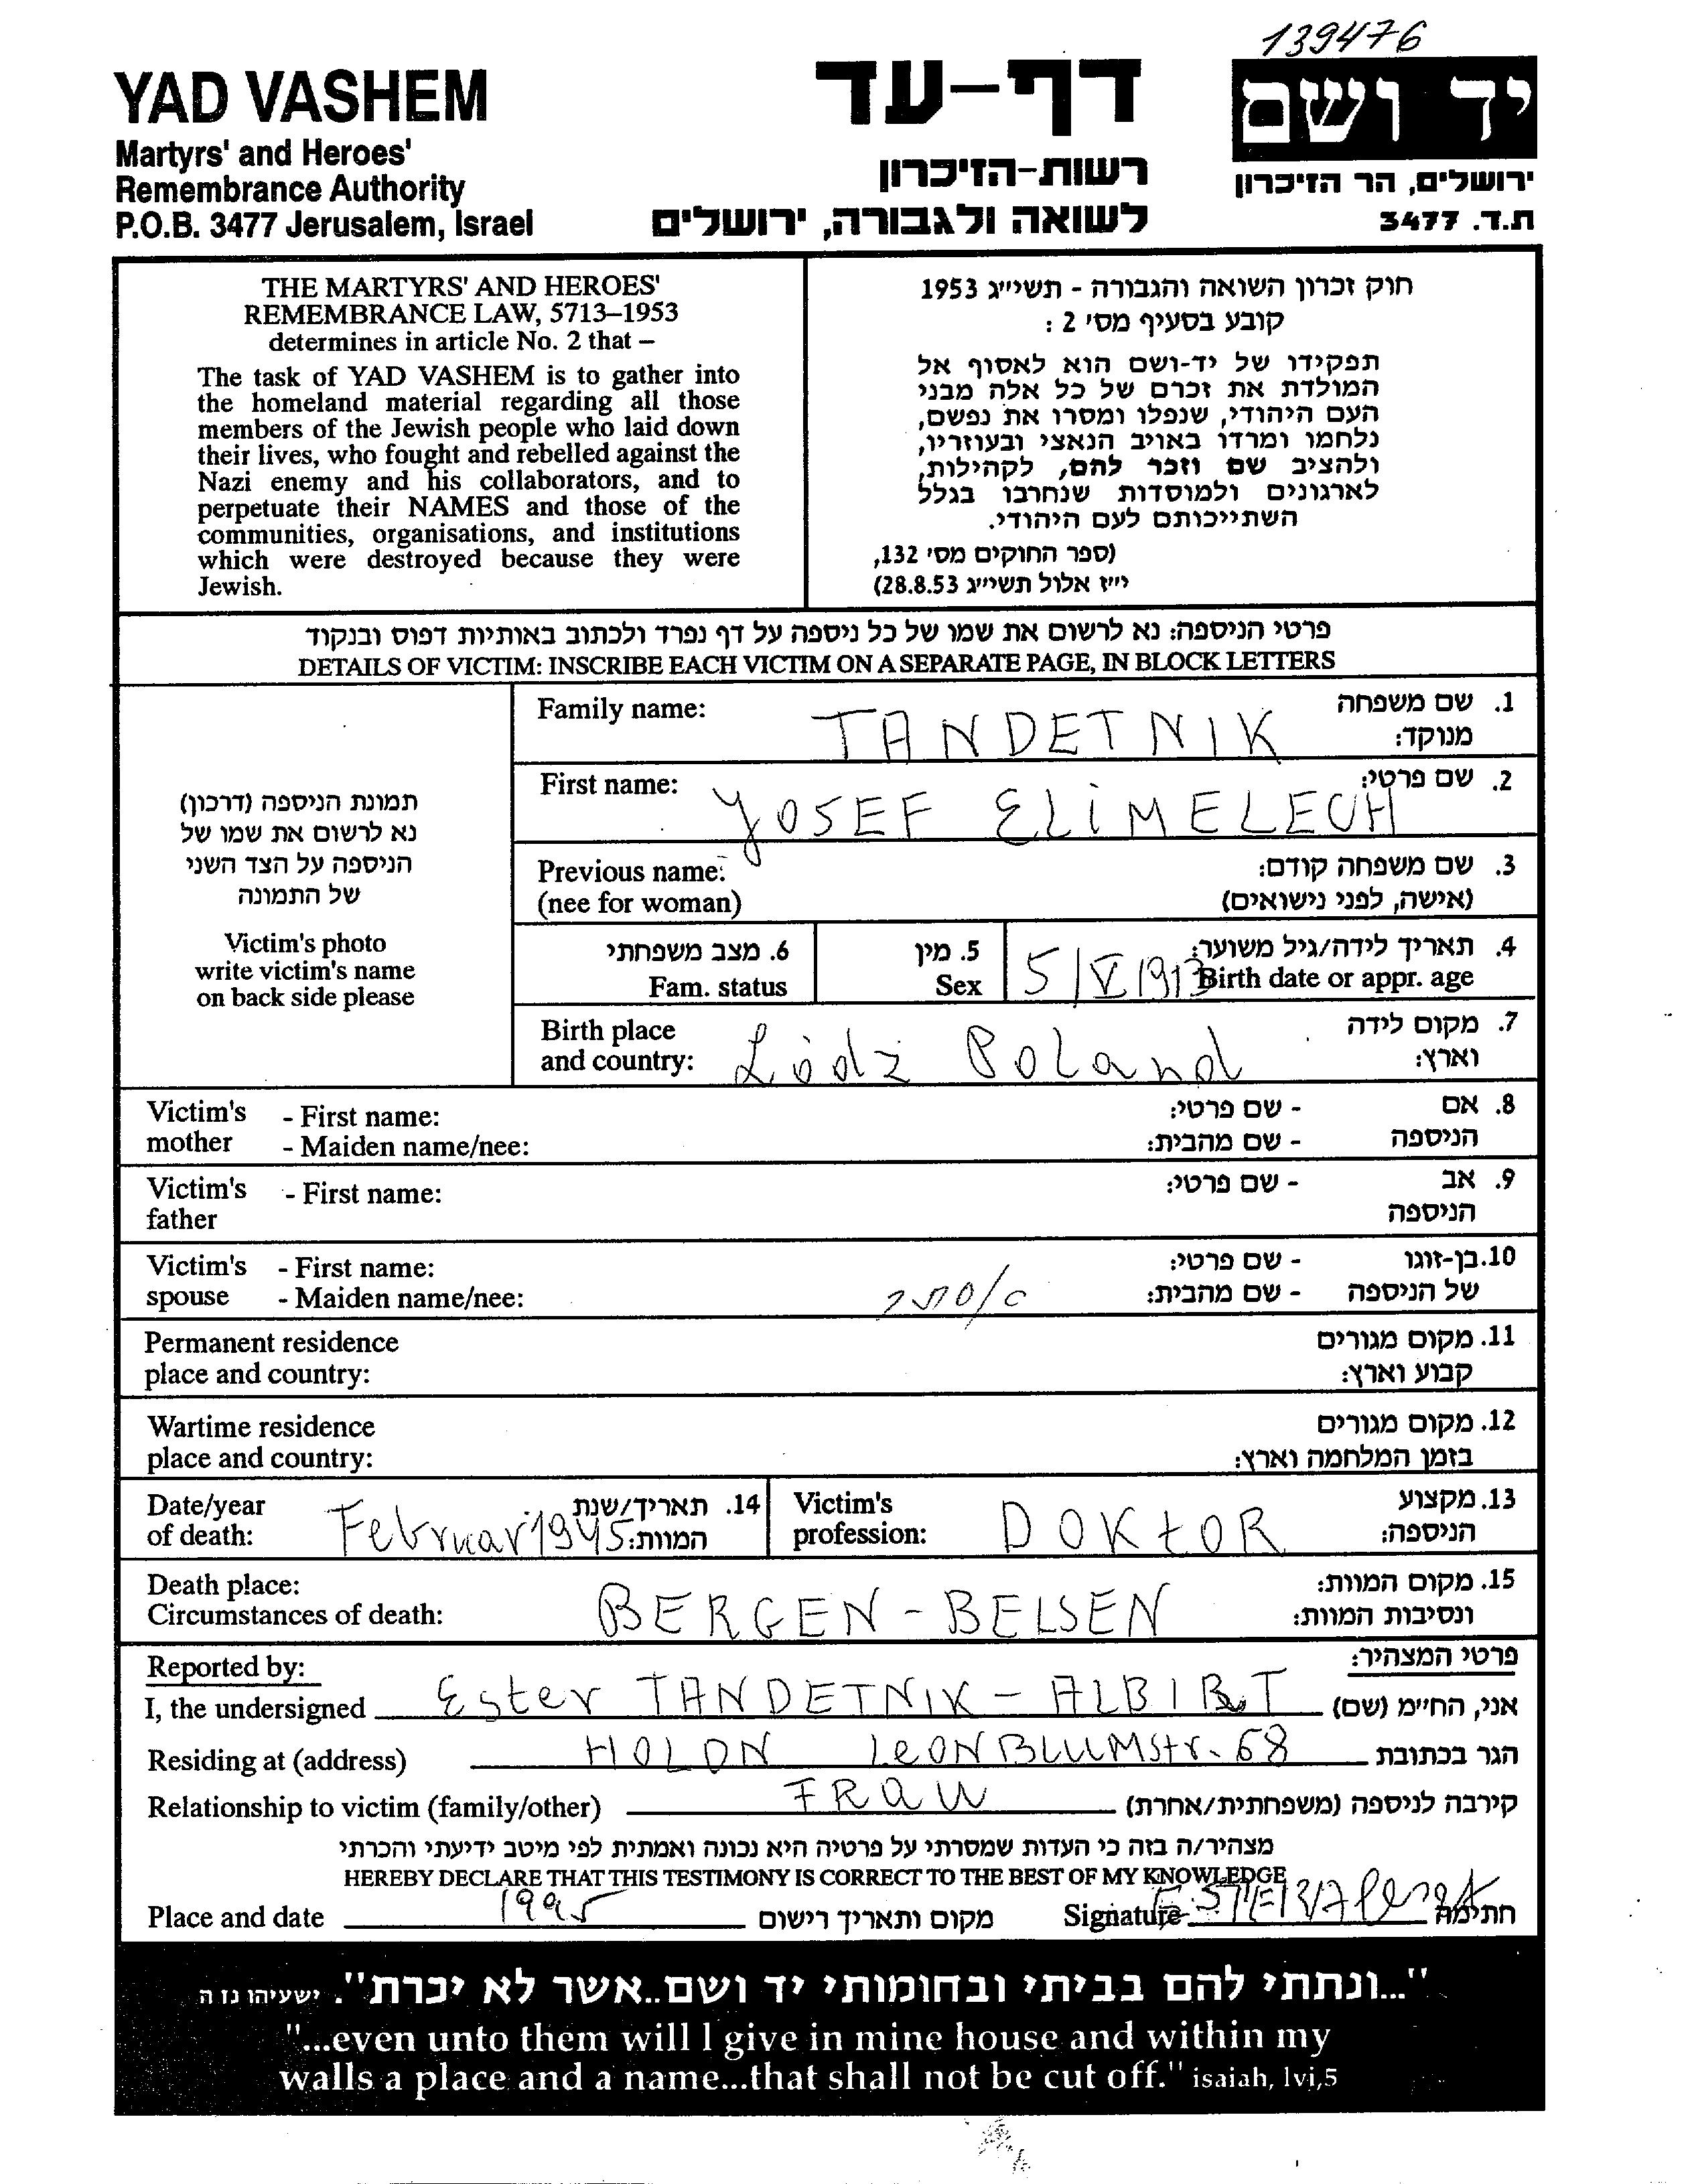 139476
YAD VASHEM
Martyrs' and Heroes'
Remembrance Authority
P.O.B. 3477 Jerusalem, Israel
דף-עד
רשות-הזיכרון
לשואה ולגבורה, ירושלים
יד ושם
ירושלים, הר הזיכרון
ת.ד. 3477
THE MARTYRS' AND HEROES'
REMEMBRANCE LAW, 5713–1953
determines in article No. 2 that –
The task of YAD VASHEM is to gather into
the homeland material regarding all those
members of the Jewish people who laid down
their lives, who fought and rebelled against the
Nazi enemy and his collaborators, and to
perpetuate their NAMES and those of the
communities, organisations, and institutions
which were destroyed because they were
Jewish.
חוק זכרון השואה והגבורה - תשי״ג 1953
קובע בסעיף מס' 2 :
תפקידו של יד-ושם הוא לאסוף אל
המולדת את זכרם של כל אלה מבני
העם היהודי, שנפלו ומסרו את נפשם,
נלחמו ומרדו באויב הנאצי ובעוזריו,
ולהציב שם וזכר להם, לקהילות,
לארגונים ולמוסדות שנחרבו בגלל
השתייכותם לעם היהודי.
(ספר החוקים מס' 132,
י״ז אלול תשי״ג 28.8.53)
פרטי הניספה: נא לרשום את שמו של כל ניספה על דף נפרד ולכתוב באותיות דפוס ובנקוד
DETAILS OF VICTIM: INSCRIBE EACH VICTIM ON A SEPARATE PAGE, IN BLOCK LETTERS
תמונת הניספה (דרכון)
נא לרשום את שמו של
הניספה על הצד השני
של התמונה
Victim's photo
write victim's name
on back side please
Family name: TANDETNIK 1. שם משפחה
מנוקד:
First name: YOSEF ELIMELECH 2. שם פרטי:
Previous name: 3. שם משפחה קודם:
(nee for woman) (אישה, לפני נישואים)
6. מצב משפחתי 5. מין 4. תאריך לידה/גיל משוער:
Fam. status Sex 5/V 1913 Birth date or appr. age
Birth place 7. מקום לידה
and country: Lódz Poland וארץ:
Victim's - First name: - שם פרטי: 8. אם
mother - Maiden name/nee: - שם מהבית: הניספה
Victim's - First name: - שם פרטי: 9. אב
father הניספה
Victim's - First name: - שם פרטי: 10. בן-זוגו
spouse - Maiden name/nee: - שם מהבית: של הניספה
Permanent residence 11. מקום מגורים
place and country: קבוע וארץ:
Wartime residence 12. מקום מגורים
place and country: בזמן המלחמה וארץ:
Date/year 14. תאריך/שנת Victim's 13. מקצוע
of death: Februar 1945 המוות: profession: DOKtOR הניספה:
Death place: 15. מקום המוות:
Circumstances of death: BERGEN - BELSEN ונסיבות המוות:
Reported by: פרטי המצהיר:
I, the undersigned Ester TANDETNIK - ALBIRT אני, החי״מ (שם)
Residing at (address) HOLON LeON BLUMStr. 68 הגר בכתובת
Relationship to victim (family/other) FRaU קירבה לניספה (משפחתית/אחרת)
מצהיר/ה בזה כי העדות שמסרתי על פרטיה היא נכונה ואמתית לפי מיטב ידיעתי והכרתי
HEREBY DECLARE THAT THIS TESTIMONY IS CORRECT TO THE BEST OF MY KNOWLEDGE
Place and date 1995 מקום ותאריך רישום Signature חתימה
"...ונתתי להם בביתי ובחומותי יד ושם..אשר לא יכרת". ישעיהו נז ה
"...even unto them will I give in mine house and within my
walls a place and a name...that shall not be cut off." isaiah, lvi,5